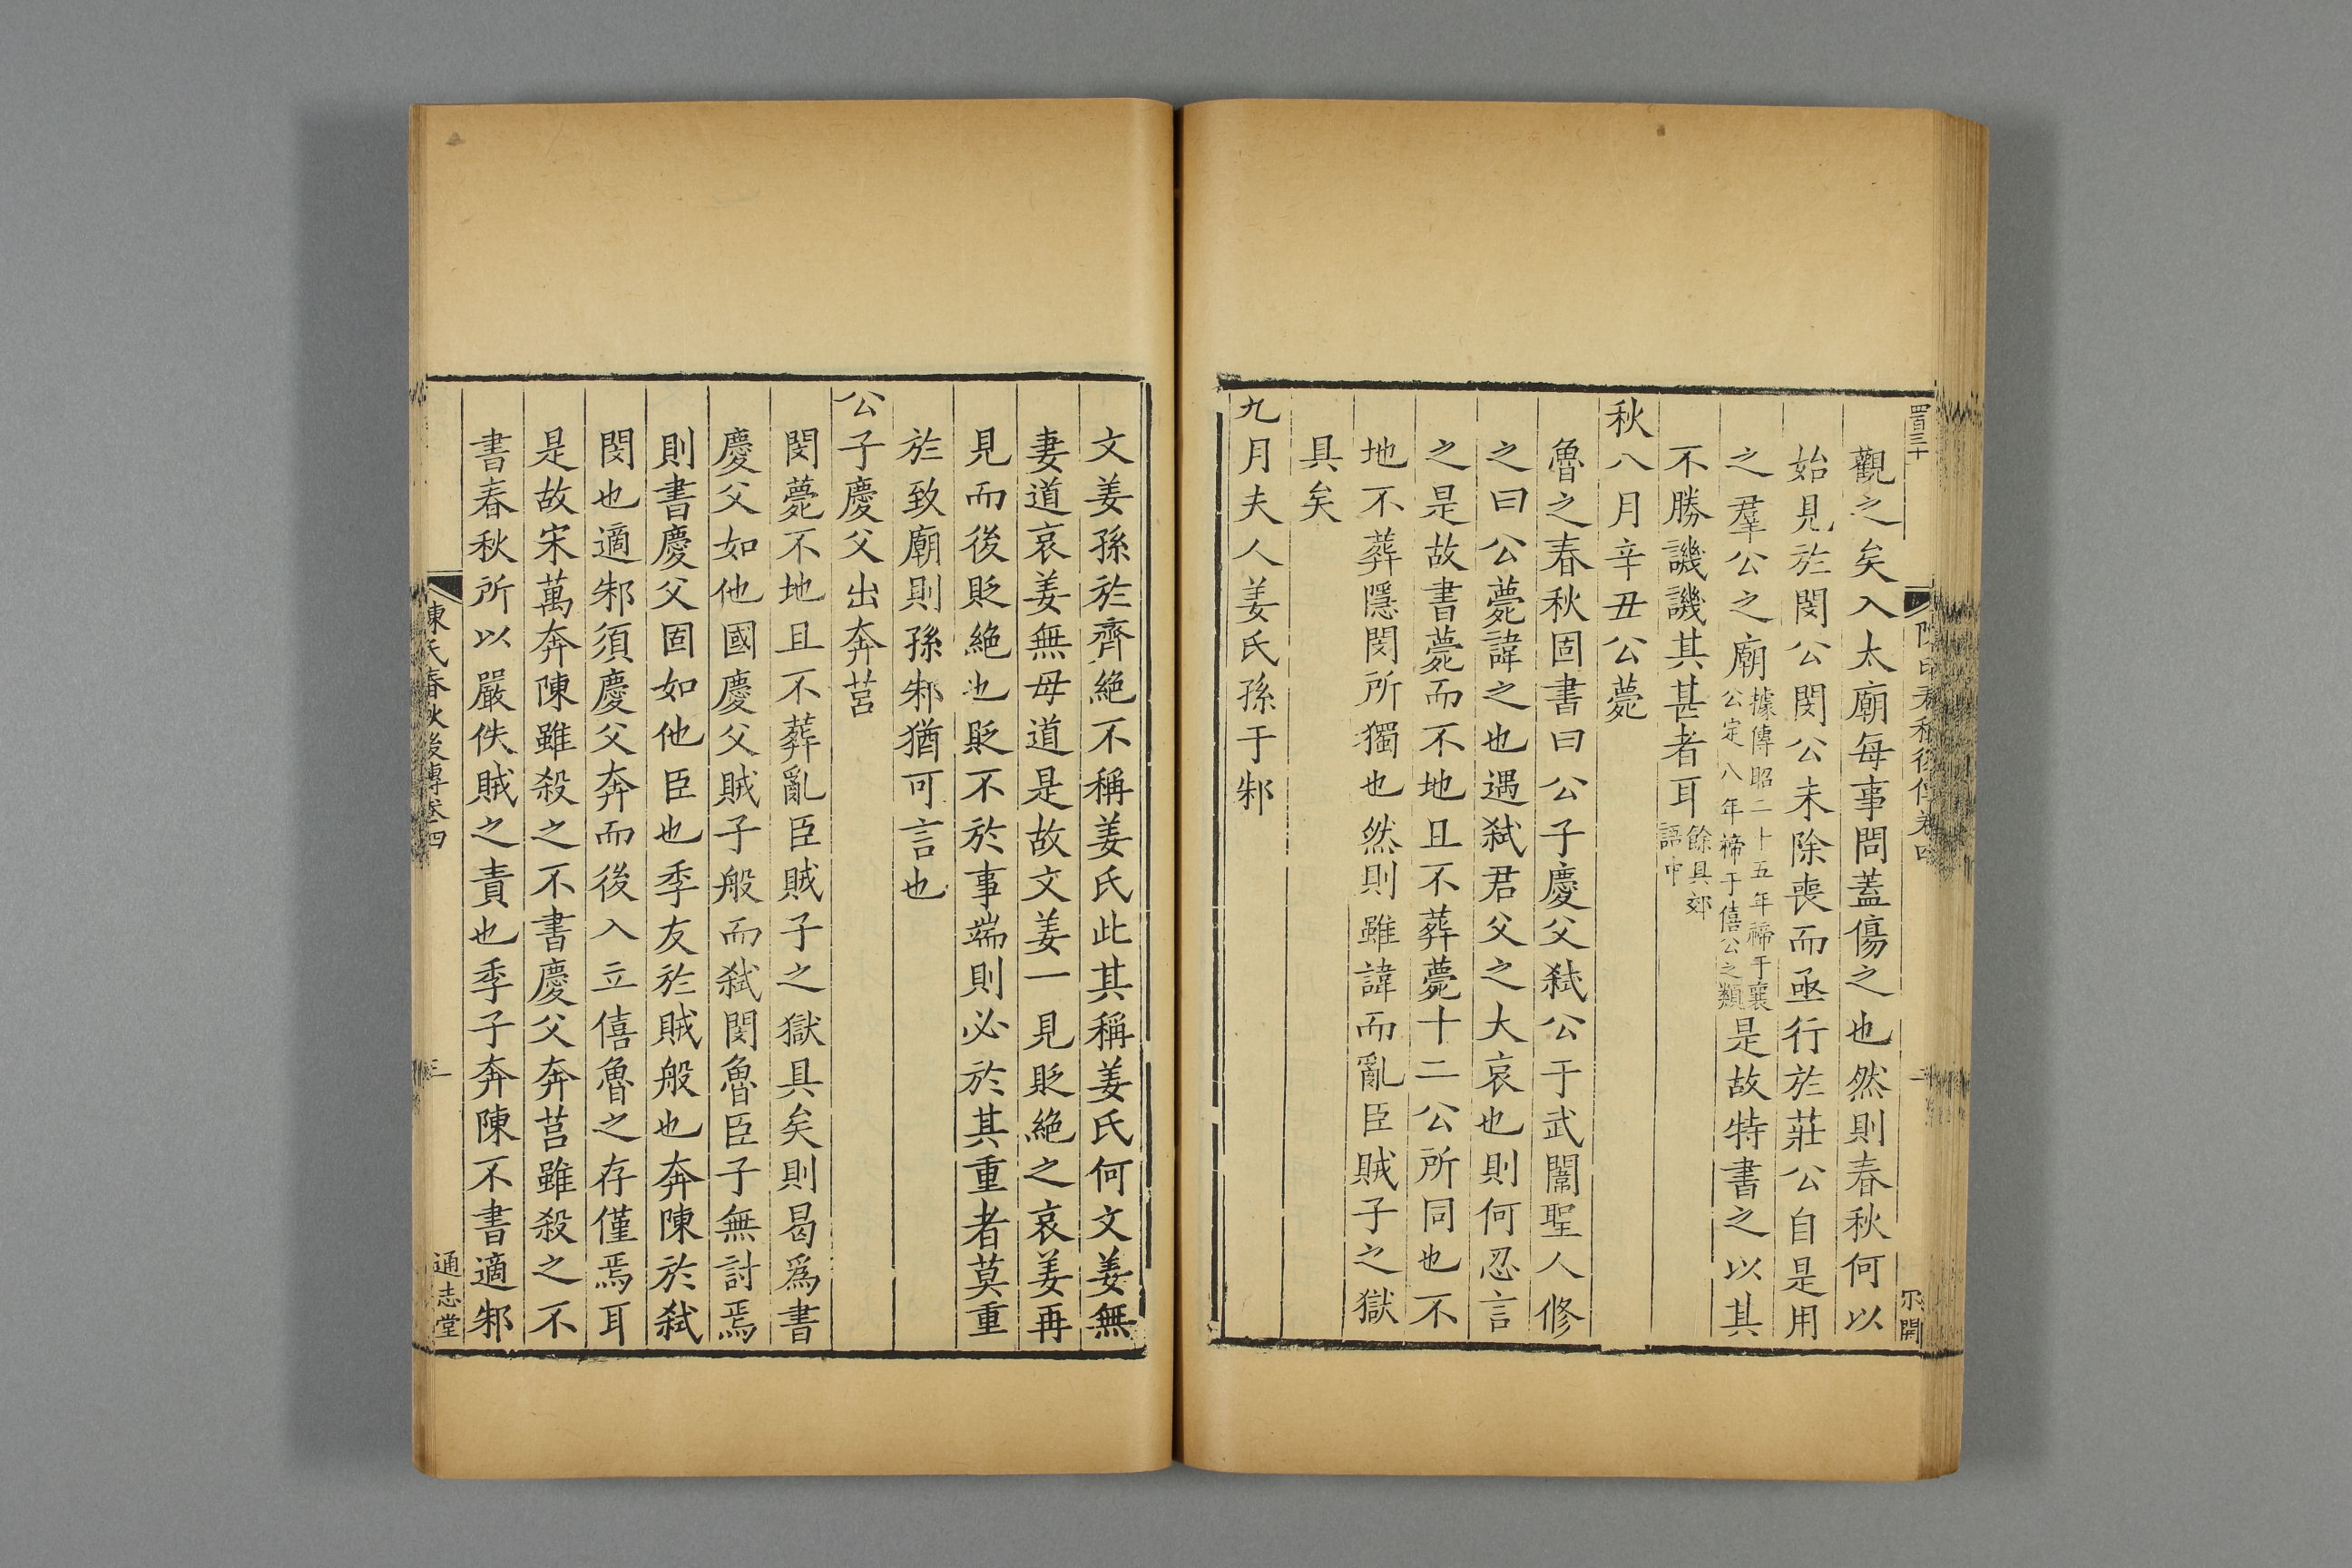 觀之矣入太廟每事問蓋傷之也然則春秋何以
始見於閔公閔公未除喪而亟行於莊公自是用
之羣公之廟據傳昭二十五年禘于襄公定八年禘于僖公之類是故特書之以其
不勝譏譏其甚者耳餘具郊語中
秋八月辛丑公薨
魯之春秋固書曰公子慶父弒公于武闈聖人修
之曰公薨諱之也遇弒君父之大哀也則何忍言
之是故書薨而不地且不葬薨十二公所同也不
地不葬隱閔所獨也然則雖諱而亂臣賊子之獄
具矣
九月夫人姜氏孫于邾
文姜孫於齊絕不稱姜氏此其稱姜氏何文姜無
妻道哀姜無母道是故文姜一見貶絕之哀姜再
見而後貶絕也貶不於事端則必於其重者莫重
於致廟則孫邾猶可言也
公子慶父出奔莒
閔薨不地且不葬亂臣賊子之獄具矣則曷爲書
慶父如他國慶父賊子般而弒閔魯臣子無討焉
則書慶父固如他臣也季友於賊般也奔陳於弒
閔也適邾須慶父奔而後入立僖魯之存僅焉耳
是故宋萬奔陳雖殺之不書慶父奔莒雖殺之不
書春秋所以嚴佚賊之責也季子奔陳不書適邾
陳氏春秋後傳卷四
三
通志堂